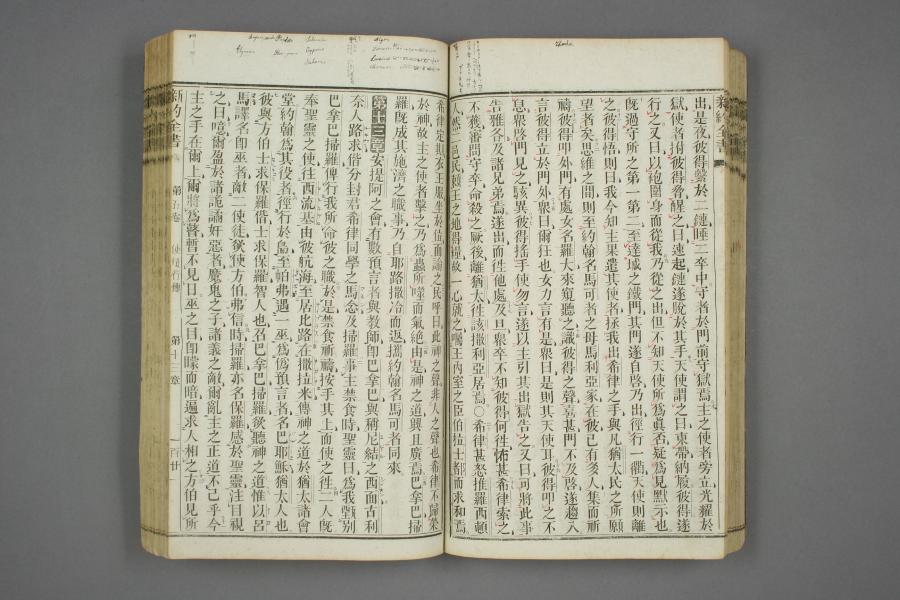 新約全書
出是夜彼得繫於二鏈睡二卒中守者於門前守獄焉主之使者旁立光耀於
獄使者拊彼得脅醒之曰速起鏈遂脫於其手天使謂之曰束帶納履彼得遂
行之又曰以袍圍身而從我乃從之出但不知天使所為真否疑為見默示也
旣過守所之第一第二至達城之鐵門其門遂自啟乃出徑行一衢天使則離
之彼得悟則曰我今知主果遣其使者拯我出希律之手與凡猶太民之所願
望者矣思維之間則至約翰名馬可者之母馬利亞家在彼已有多人集而祈
禱彼得叩外門有處女名羅大來窺聽之識彼得之聲喜甚門不及啟遂趨入
言彼得立於門外眾曰爾狂也女力言有是眾曰是則其天使耳彼得叩之不
息眾啟門見之駭異彼得搖手使勿言遂以主引其出獄告之又曰可將此事
告雅各及諸兄弟焉遂出而往他處及旦眾卒不知彼得何往怖甚希律索之
不獲審問守卒命殺之厥後離猶太往該撒利亞居焉○希律甚怒推羅西頓
人然二邑民賴王之地得糧故一心就之囑王內室之臣伯拉士都而求和焉
希律定期衣王服坐於位而諭之民呼曰此神之聲非人之聲也希律不歸榮
於神故主之使者擊之乃為蟲所噬而氣絕由是神之道興且廣焉巴拿巴掃
羅旣成其施濟之職事乃自耶路撒冷而返攜約翰名馬可者同來
第十三章安提阿之會有數預言者與教師卽巴拿巴與稱尼結之西面古利
奈人路求偕分封君希律同學之馬念及掃羅事主禁食時聖靈曰為我甄別
巴拿巴掃羅俾行我所命彼之職於是禁食祈禱按手其上而使之往二人旣
奉聖靈之使往西流基由彼航海至居比路在撒拉米傳神之道於猶太諸會
堂約翰為其役者徑行於島至帕弗遇一巫為偽預言者名巴耶穌猶太人也
彼與方伯士求保羅偕士求保羅智人也召巴拿巴掃羅欲聽神之道惟以呂
馬譯名卽巫者敵二使徒欲使方伯弗信時掃羅亦名保羅感於聖靈注目視
之曰噫爾盈於諸詭譎奸惡者魔鬼之子諸義之敵爾亂主之正道不已乎今
主之手在爾上爾將為瞽暫不見日巫之目卽矇而暗遍求人相之方伯見所
新約全書 第五卷 使徒行傳 第十三章 一百廿